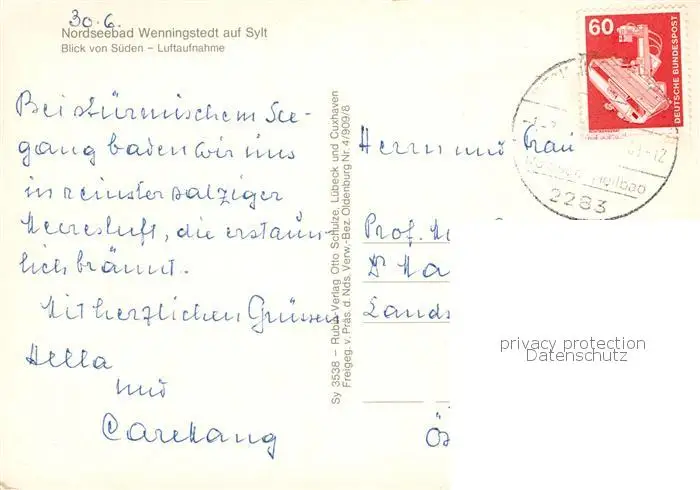 30.6.
Nordseebad Wenningstedt auf Sylt
Blick von Süden – Luftaufnahme
Bei stürmischem See-
gang baden wir uns
in reinster salziger
Meeresluft, die erstaun-
lich bräunt.
Mit herzlichen Grüssen
Hella
und
Sy 3538 – Rubin-Verlag Otto Schulze, Lübeck und Cuxhaven
Freigeg. v. Präs. d. Nds. Verw.-Bez. Oldenburg Nr. 4/909/8
60
DEUTSCHE BUNDESPOST
2283
Herrn und Frau
Prof.
Dr
Lands
Ös
privacy protection
Datenschutz